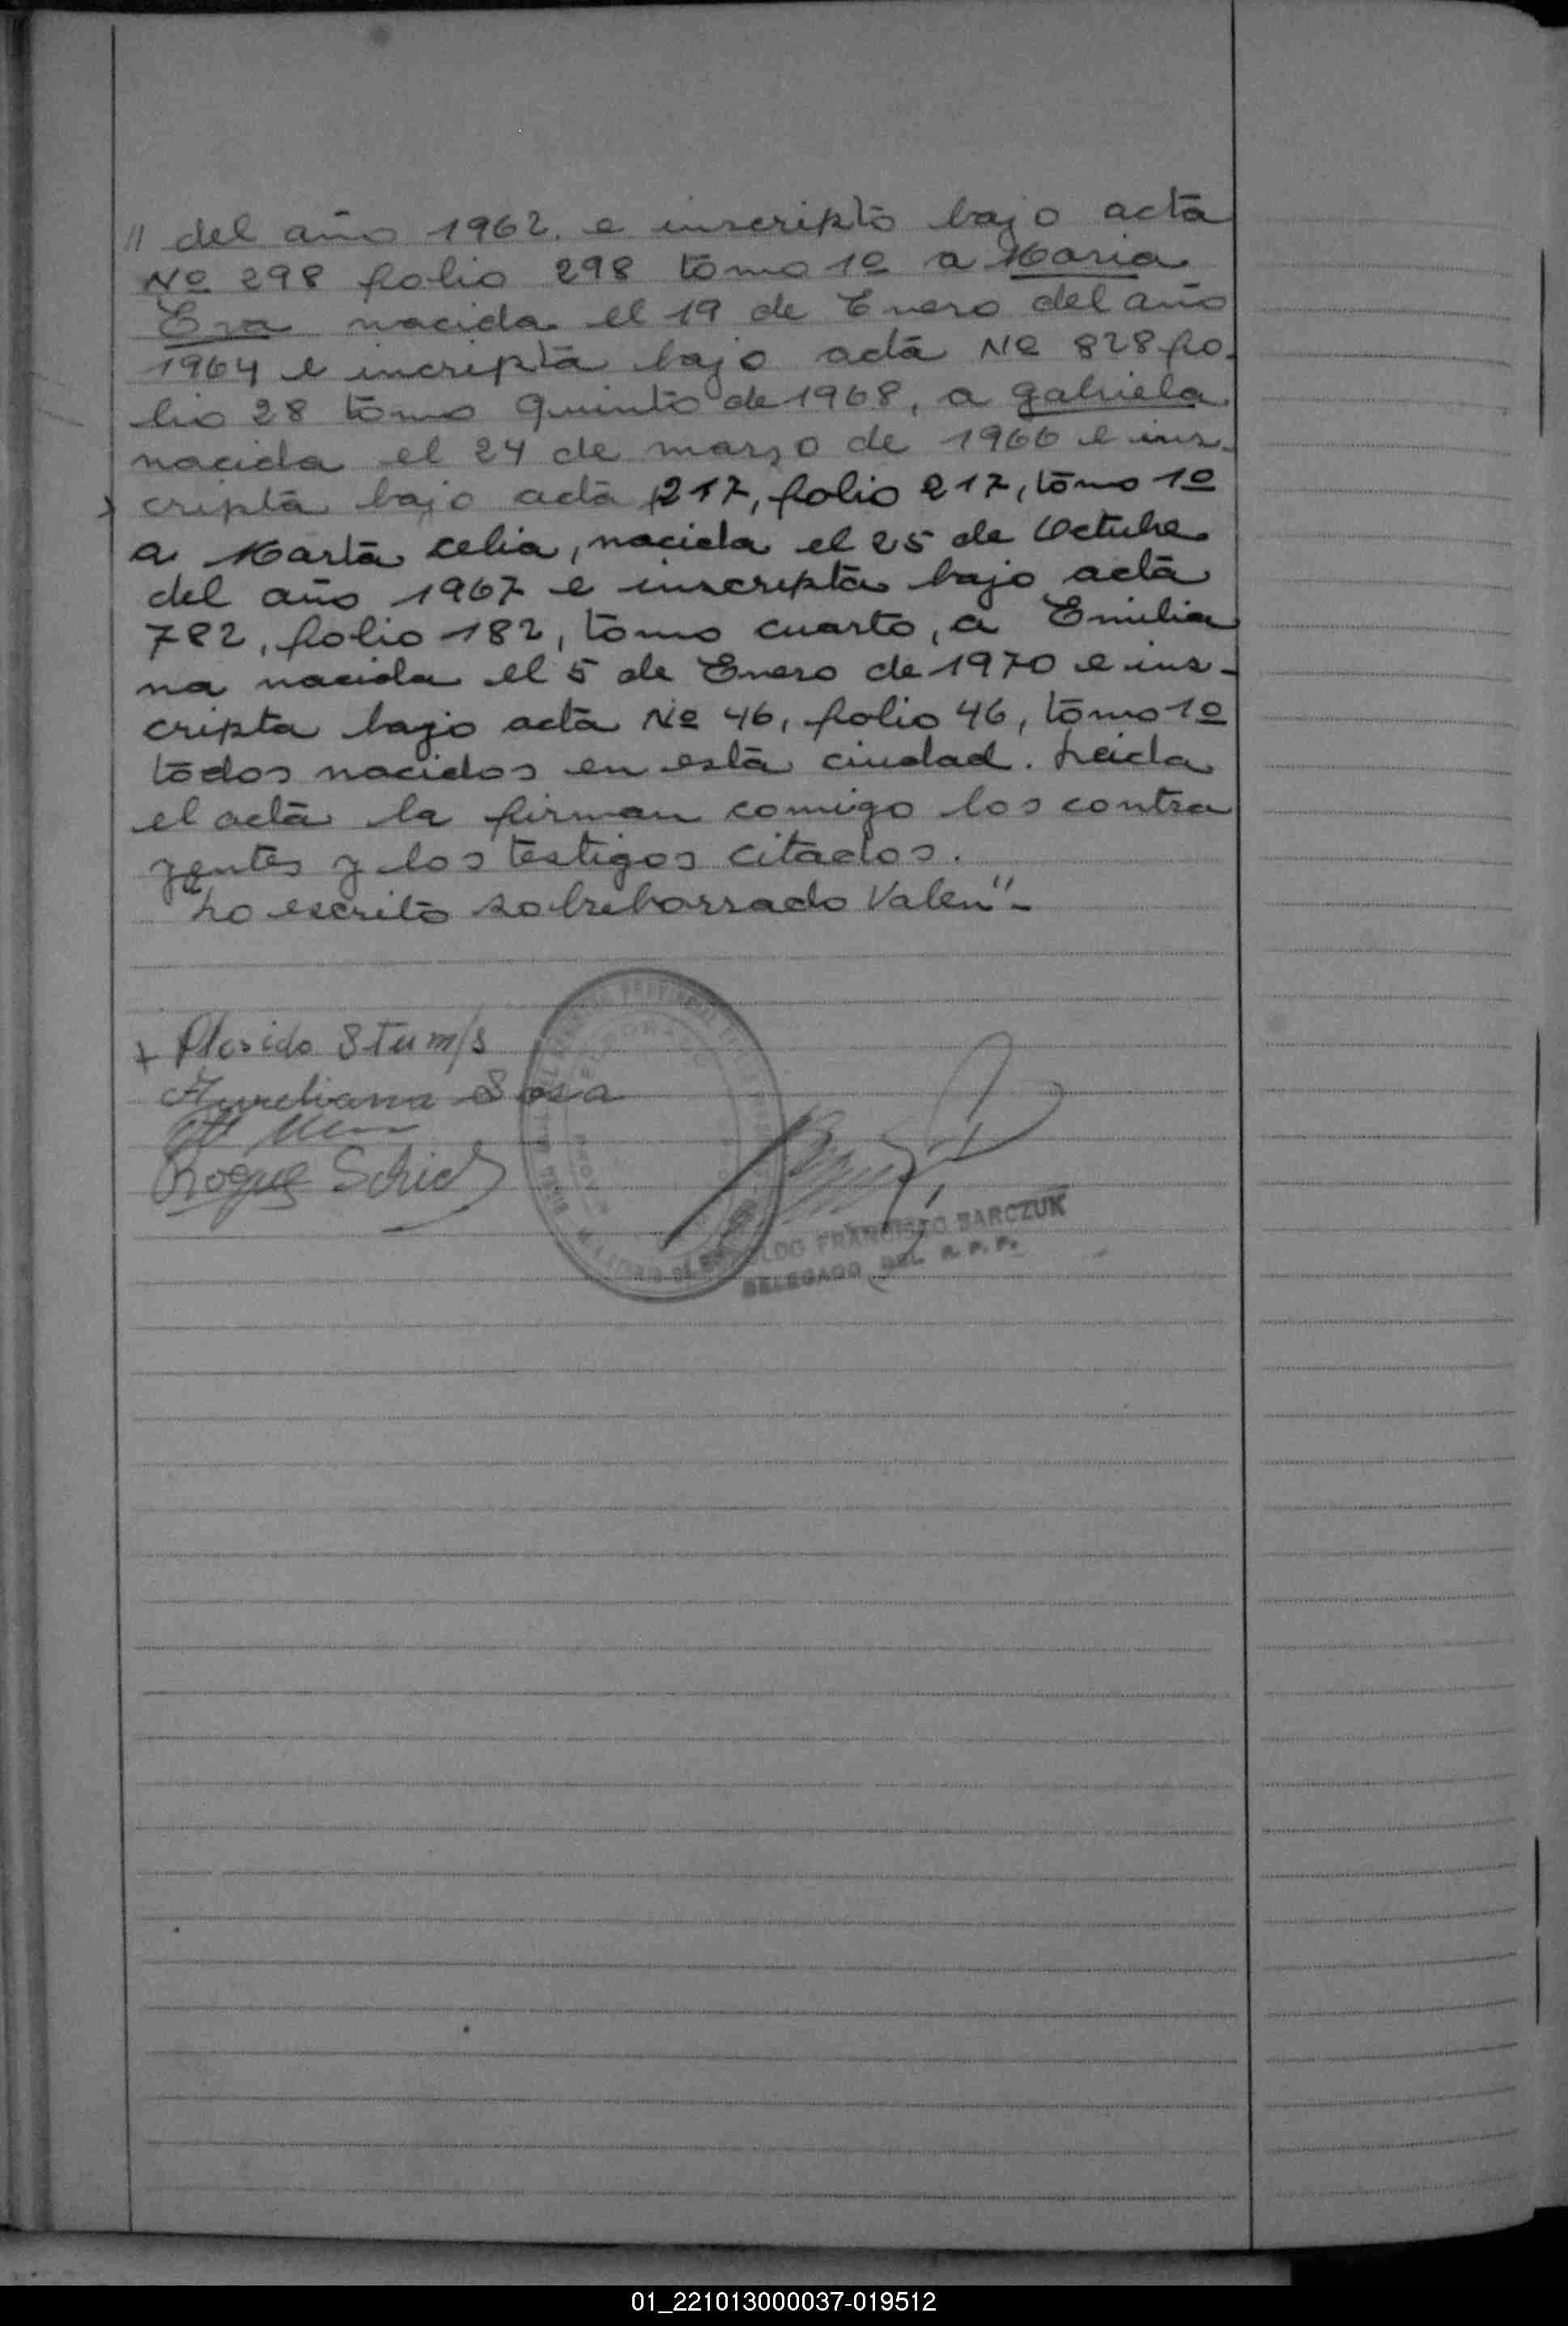 // del año 1962. e inscripto bajo acta
Nº 298 folio 298 tomo 1º a Maria
Eva nacida el 19 de Enero del año
1964 e incripta bajo acta Nº 828 fo-
lio 28 tomo quinto de 1968, a gabriela
nacida el 24 de marzo de 1966 e ins-
cripta bajo acta 217, folio 217, tomo 1º
a Marta celia, nacida el 25 de Octubre
del año 1967 e inscripta bajo acta
782, folio 182, tomo cuarto, a Emilia
na nacida el 5 de Enero de 1970 e ins-
cripta bajo acta Nº 46, folio 46, tomo 1º
todos nacidos en esta ciudad. Leida
el acta la firman comigo los contra
yentes y los testigos citados.
"Lo escrito sobreborrado Valen"-
+ Plasido Stum/s
Aureliana Sosa
Roque
FRANCISCO BARCZUK
DELEGADO DEL R. P. P.
01_221013000037-019512